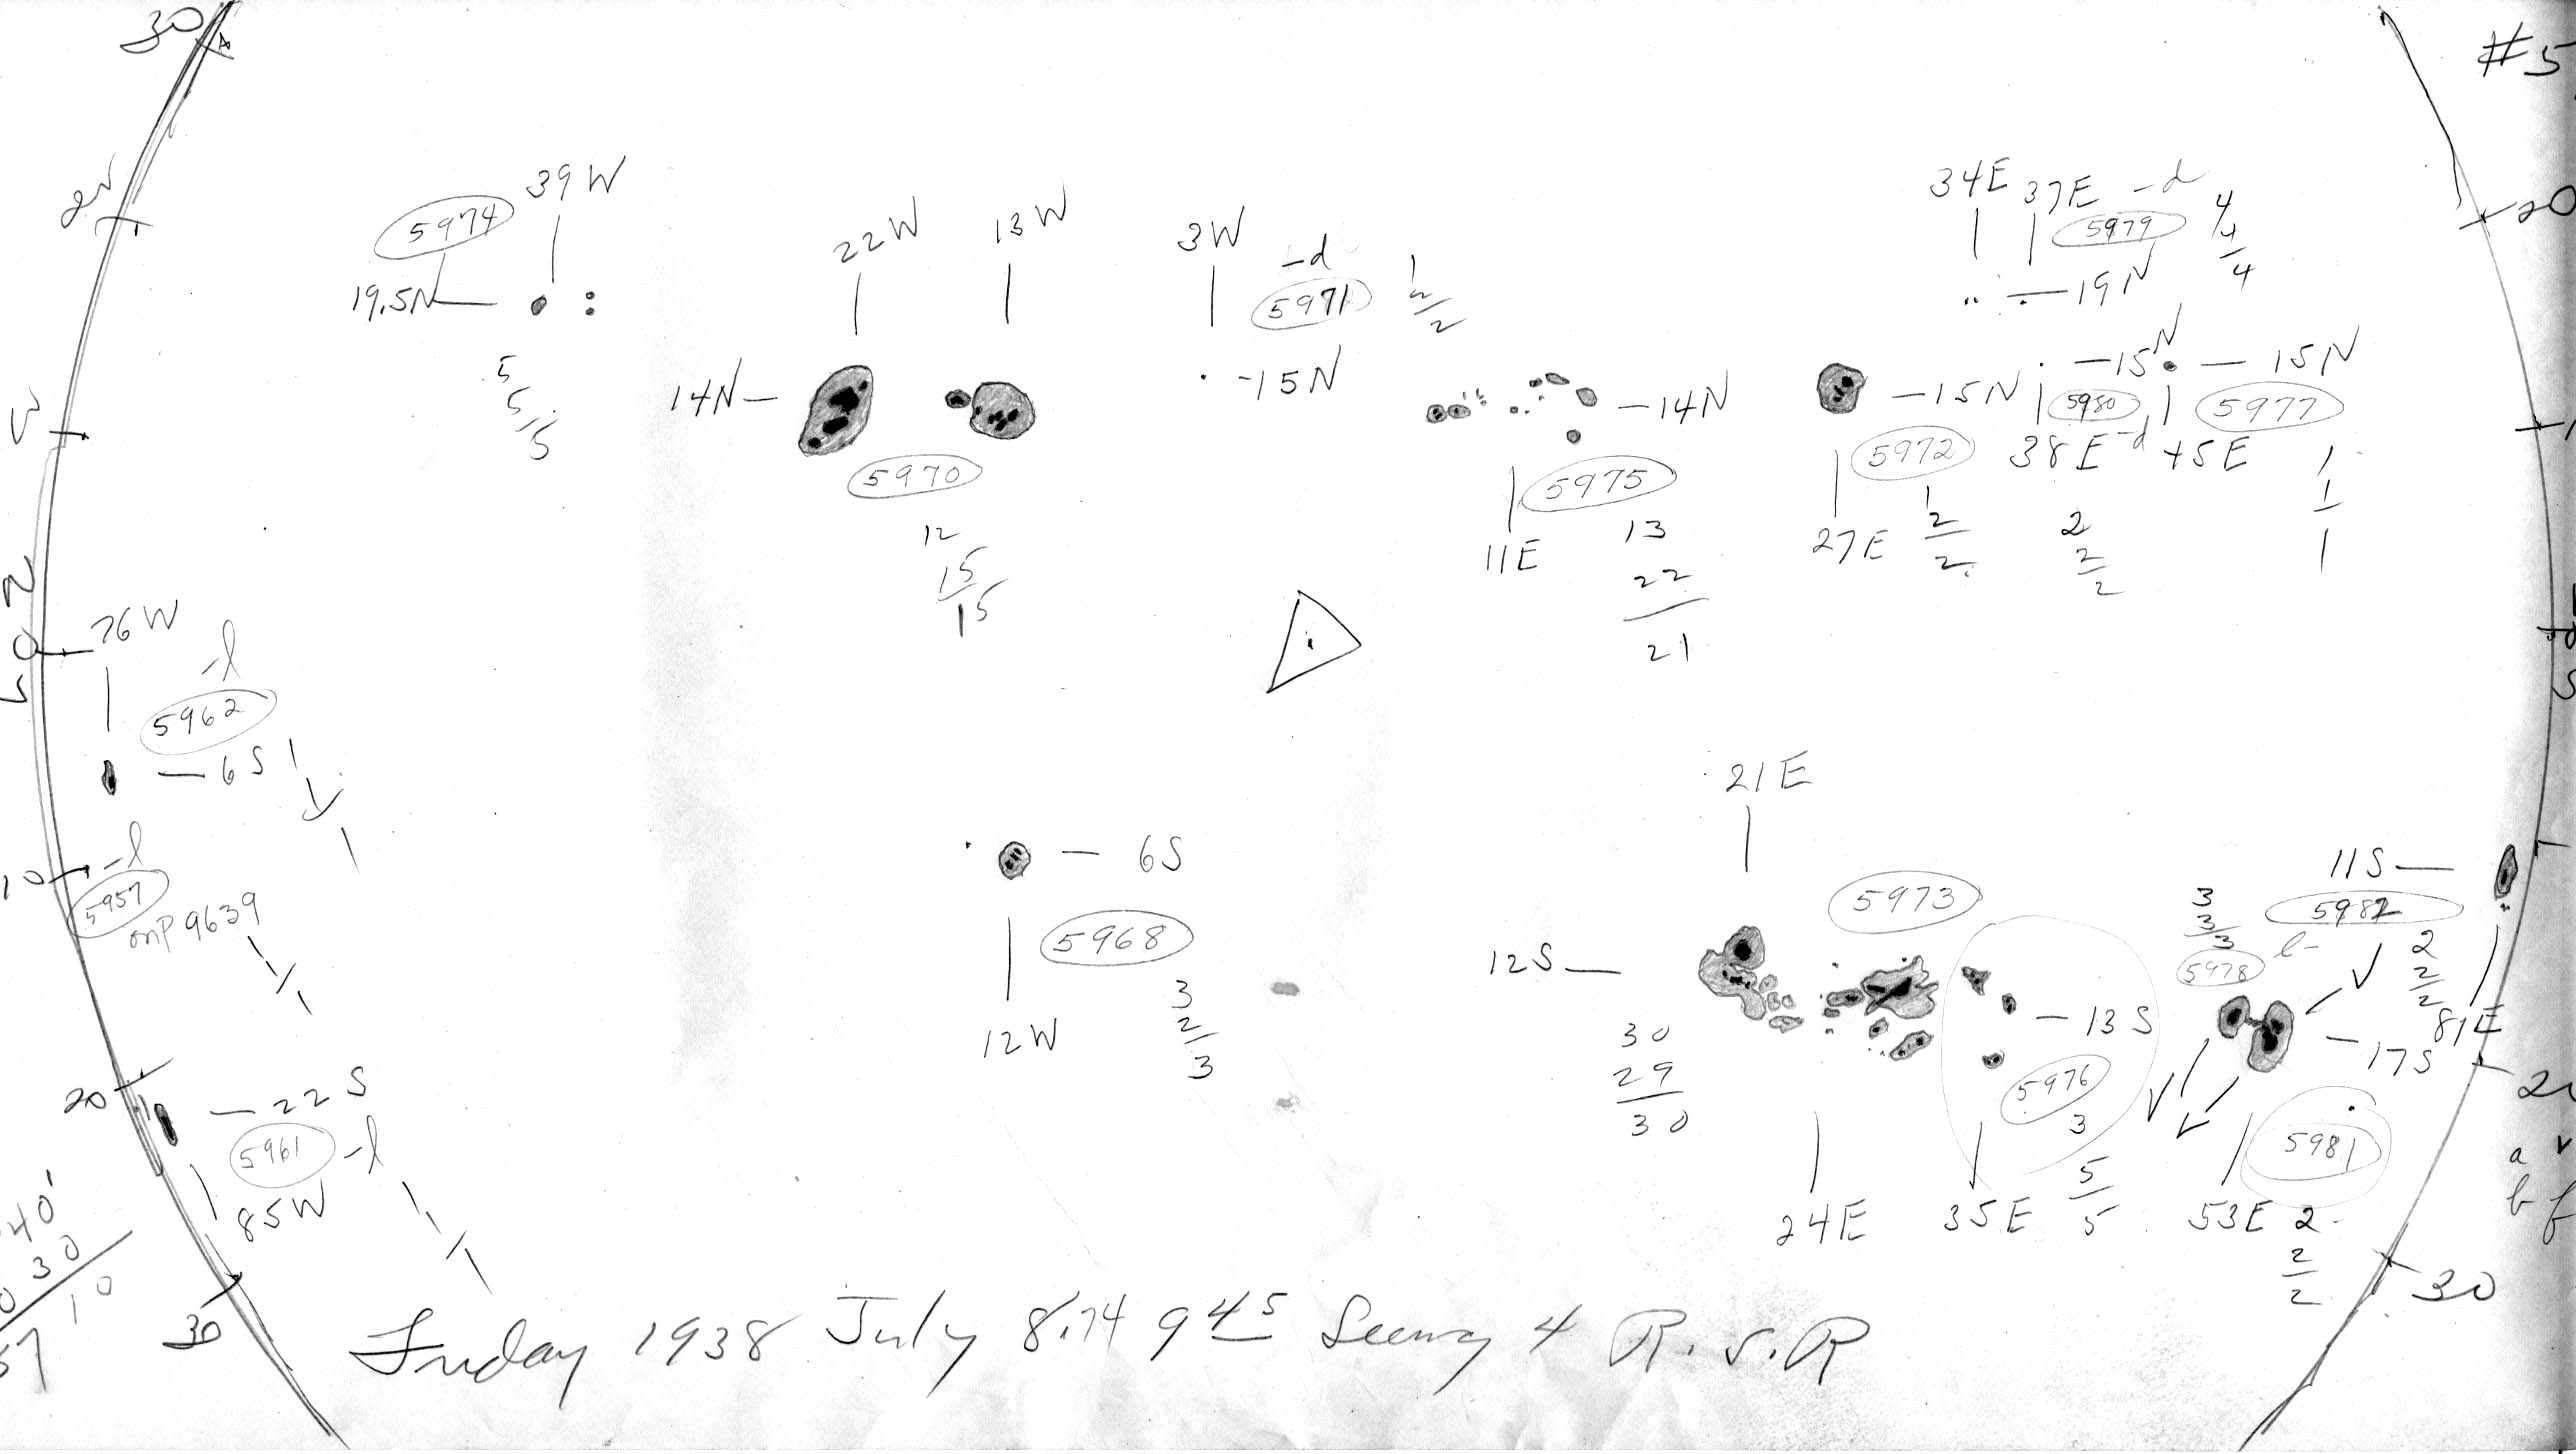 30
#5
20
39W
5974
19.5N
5
5
5
22W
13W
14N
5970
12
15
15
3W
-d
5971
-15N
1
2
2
34E
37E
-d
5979
4
4
4
-19N
-14N
5975
11E
13
22
21
-15N
5972
27E
1
2
2
-15N
5980
38E
-d
2
2
2
-15N
5977
45E
1
1
1
76W
-l
5962
-6S
10
-l
5957
mP 9639
20
-22S
5961
-l
85W
40'
30
10
57
30
-6S
5968
12W
3
2
3
21E
5973
12S
30
29
30
24E
-13S
5976
3
5
5
35E
11S
5982
l-
2
2
2
81E
3
3
3
5978
-17S
5981
53E
2
2
2
a v
b f
30
Friday 1938 July 8.74 9 45 Seeing 4 R.S.R